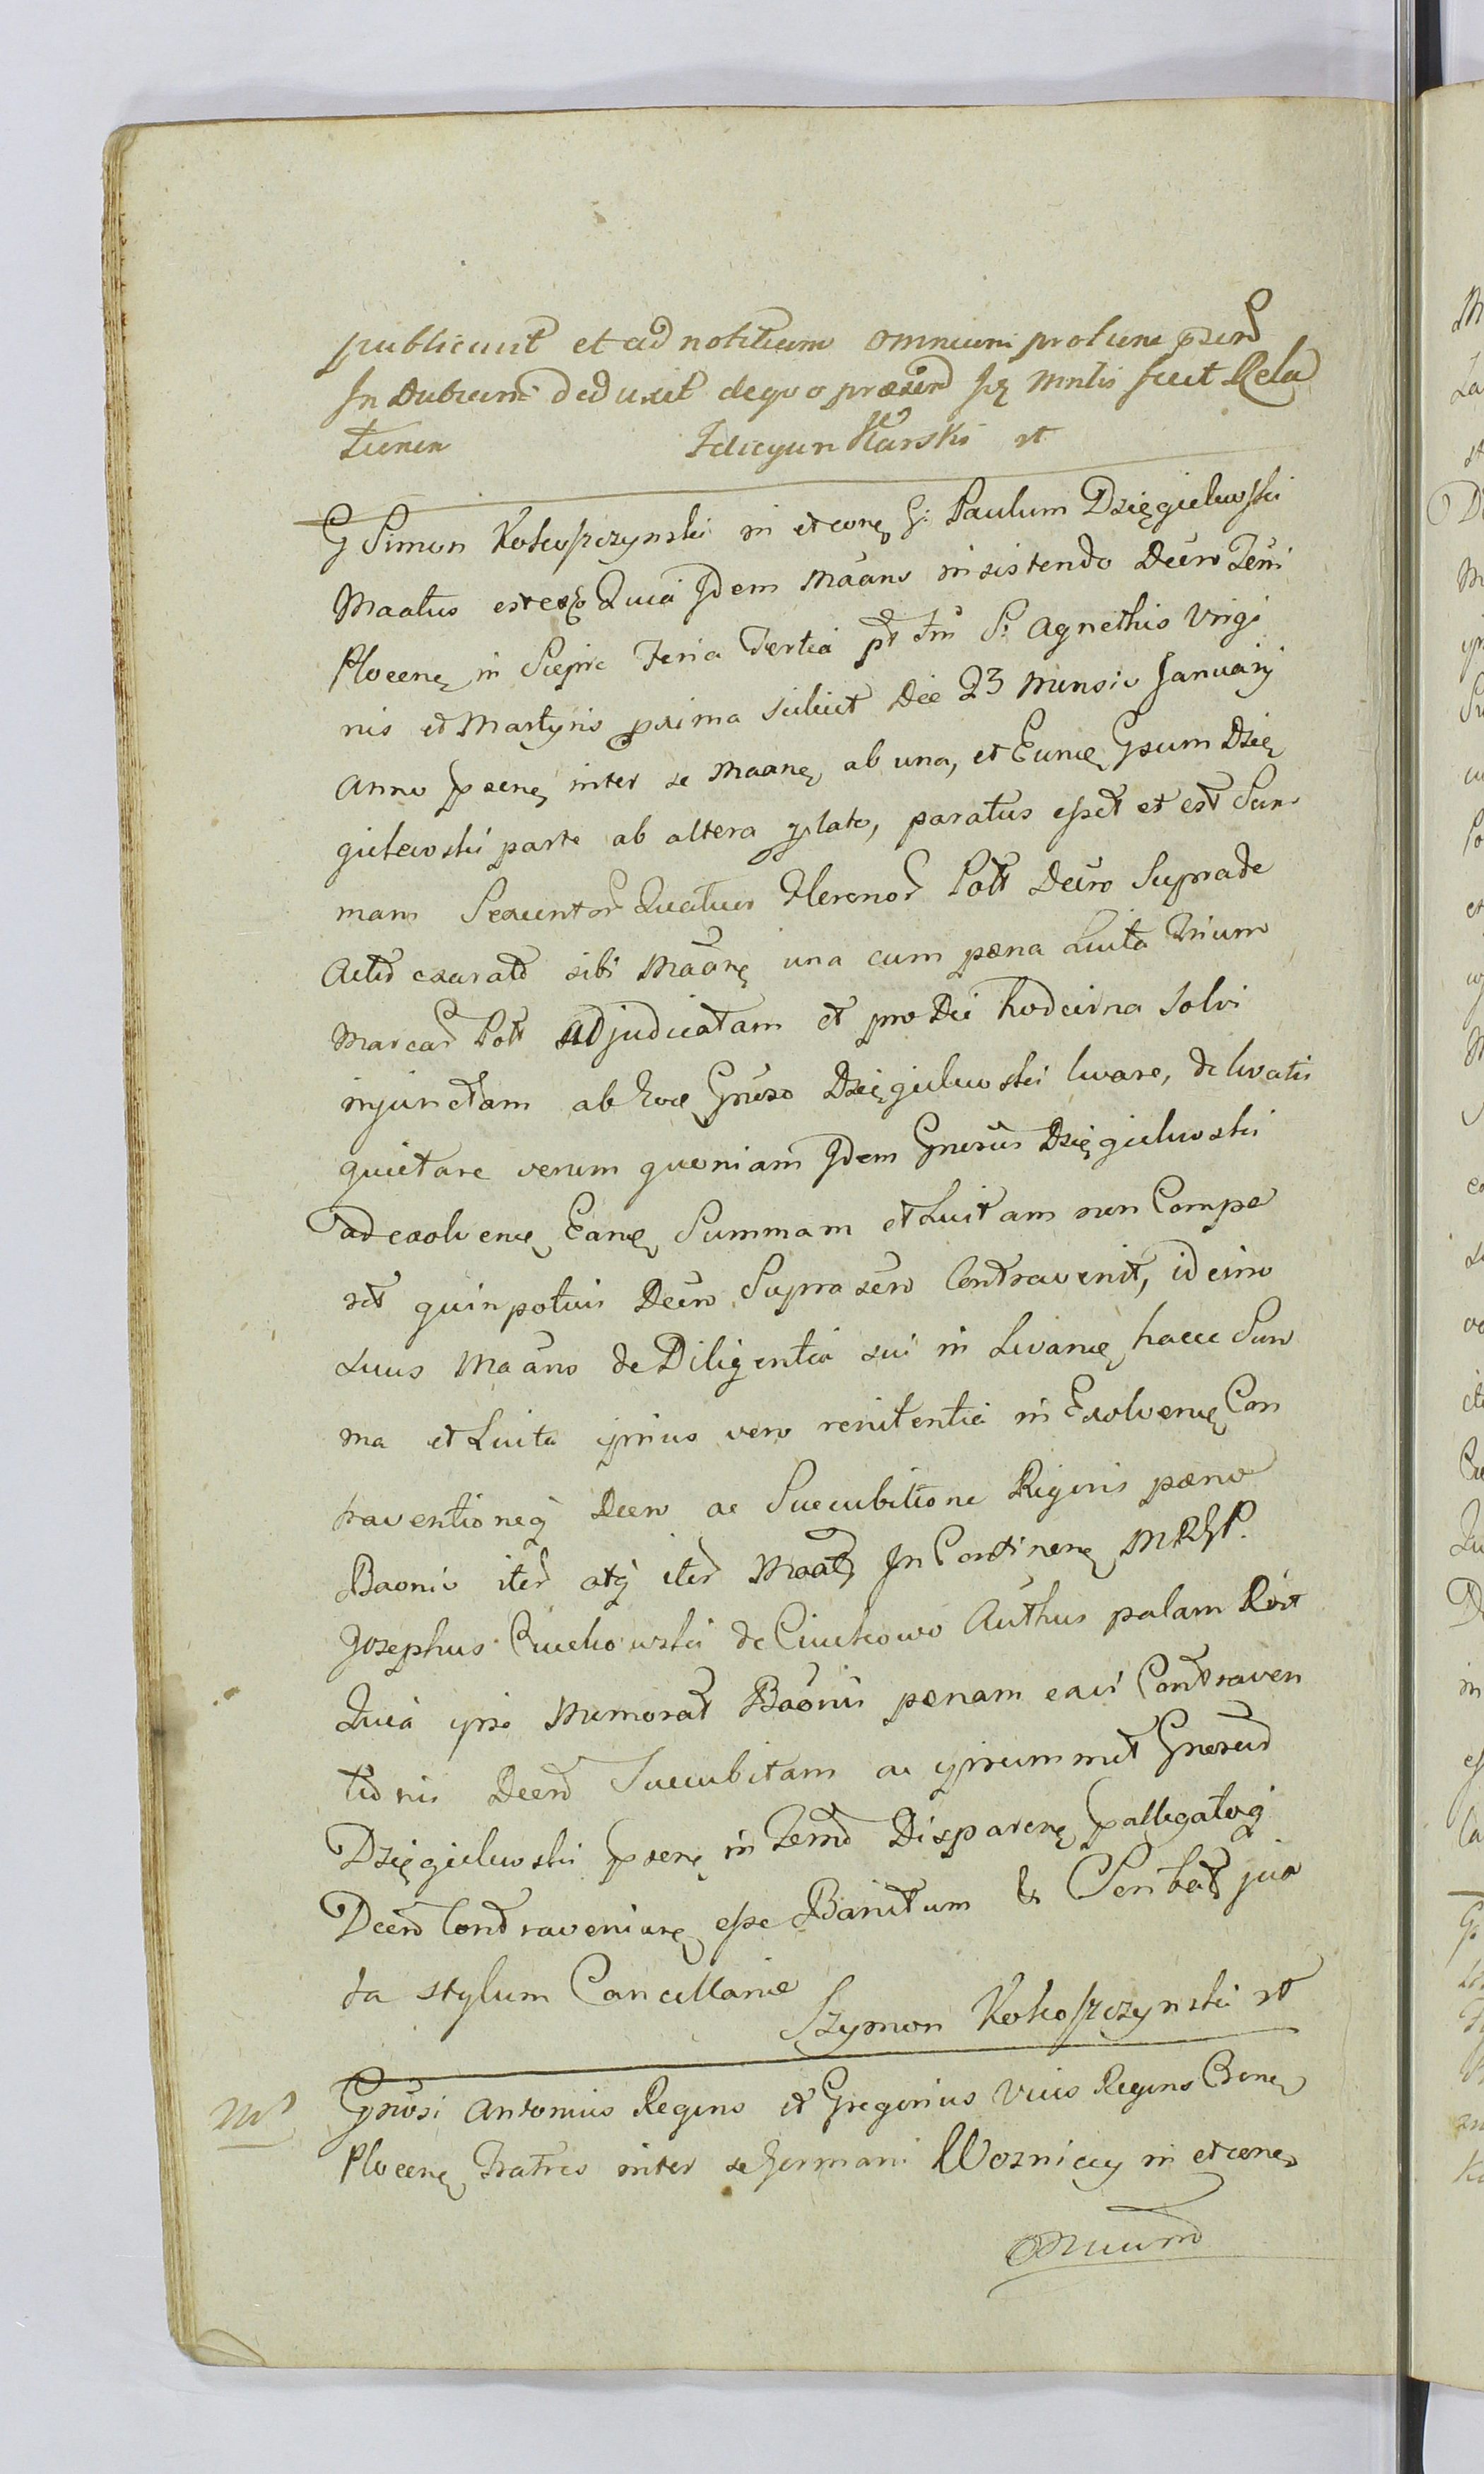 publicavit et ad notitiam omnium protunc pserd
In dubiam deduxit de quo præsend Iq mntis fecit Rela
tionem Felicyan Karski rt
G Simon Kokoszczynski in et conq G: Paulum Dzięgielewski
Maatus est exq Quia Idem Maans insistendo Decro Terri
Plocenq in Sieprc Feria Tertia pt Fm S: Agnethis Virgi
nis et Martyris prima scilicet Die 23 Mensis Januarij
Anno psenq inter se Maanq ab una, et Eunq Gsum Dzię
gielewski parte ab altera lato, paratus esset et est Sum
mam Sexcentor Quatuor Flerenor Poll Decro Suprade
Actis exarato sibi Maanq una cum pæna Luita Trium
Marcar Poll adjudicatam et pro Die hodierna solvi
injunctam ab Eoq Gnoso Dzięgielewski levare, de levatis
quietare verum quoniam Idem Gnosus Dzięgielewski
ad exolvenq Eanq Summam et Luitam non Compa
ret quin potius Decro Suprascro Contravenit, id circo
suus Maans de Diligentia sui in Levanq hacce Sum
ma et Luita ipsius vero renitentia in Exolvenq Con
traventioneq Decro ac Succubitione Rigoris pænæ
Baonis iter atq iter Maatq In Continenq MRGP.
Josephus Ciuchowski de Ciuchowo Authus palam Rcit
Quia ipse Memorat Baonis pænam eaci Contraven
tionis Decro Succubitam ac ipsummet Gnosum
Dzięgielewski psenq in Termo Disparenq pallegatoq
Decro Contravenienq esse Banitum & Scribat jux
ta stylum Cancellariæ
Szymon Kokoszczynski rt
Mt Gnosi Antonius Regens et Gregorius Vice Regens Crenq
Plocenq Fratres inter se Germani Wozniccy in et conq
omnium